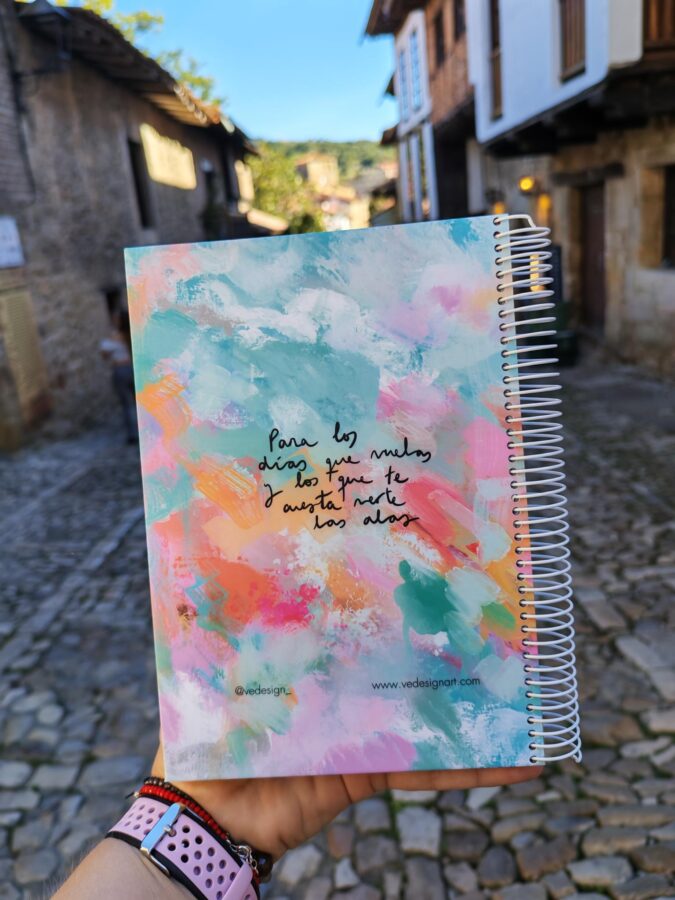 Para los
días que vuelas
y los que te
cuesta verte
las alas
@vedesign_
www.vedesignart.com